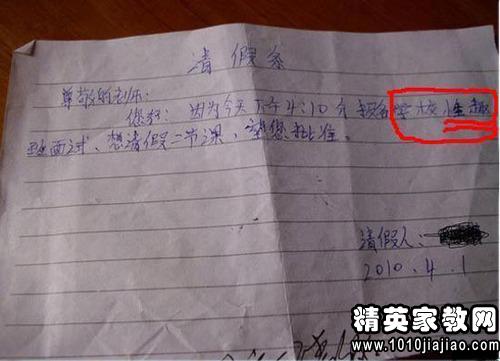 请假条
尊敬的老师:
您好: 因为今天下午4:10分报名学校性趣
面试、想请假二节课、望您批准。
请假人:
2010.4.1
精英家教网
www.1010jiajiao.com